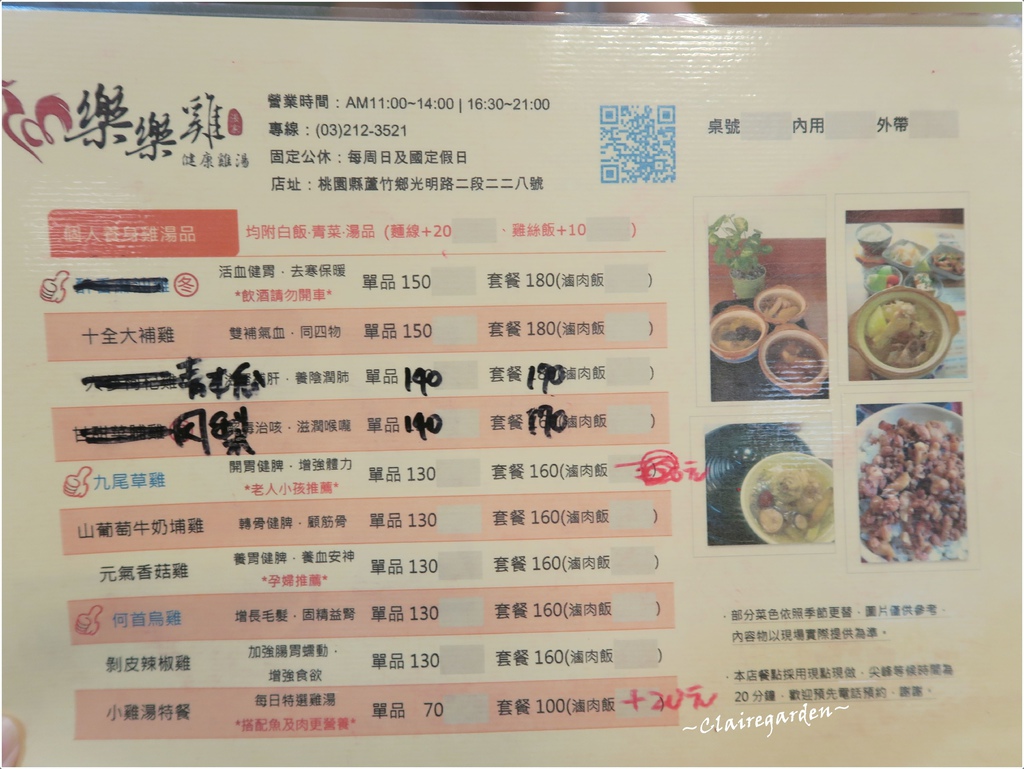 樂樂雞
健康雞湯
營業時間：AM11:00~14:00 | 16:30~21:00
專線：(03)212-3521
固定公休：每周日及國定假日
店址：桃園縣蘆竹鄉光明路二段二二八號
桌號 內用 外帶
個人養身雞湯品 均附白飯‧青菜‧湯品 (麵線+20 、雞絲飯+10 )
冬 活血健胃‧去寒保暖 單品 150 套餐 180(滷肉飯 )
*飲酒請勿開車*
十全大補雞 雙補氣血‧同四物 單品 150 套餐 180(滷肉飯 )
青木瓜 肝‧養陰潤肺 單品 190 套餐 190 (滷肉飯 )
治咳‧滋潤喉嚨 單品 190 套餐 190 (滷肉飯 )
九尾草雞 開胃健脾‧增強體力 單品 130 套餐 160(滷肉飯 )
*老人小孩推薦*
山葡萄牛奶埔雞 轉骨健脾‧顧筋骨 單品 130 套餐 160(滷肉飯 )
元氣香菇雞 養胃健脾‧養血安神 單品 130 套餐 160(滷肉飯 )
*孕婦推薦*
何首烏雞 增長毛髮‧固精益腎 單品 130 套餐 160(滷肉飯 )
剝皮辣椒雞 加強腸胃蠕動‧ 單品 130 套餐 160(滷肉飯 )
增強食欲
小雞湯特餐 每日特選雞湯 單品 70 套餐 100(滷肉飯 +20元
*搭配魚及肉更營養*
‧部分菜色依照季節更替‧圖片僅供參考‧
內容物以現場實際提供為準。
‧本店餐點採用現點現做‧尖峰等候時間為
20分鐘‧歡迎預先電話預約‧謝謝。
~Clairegarden~